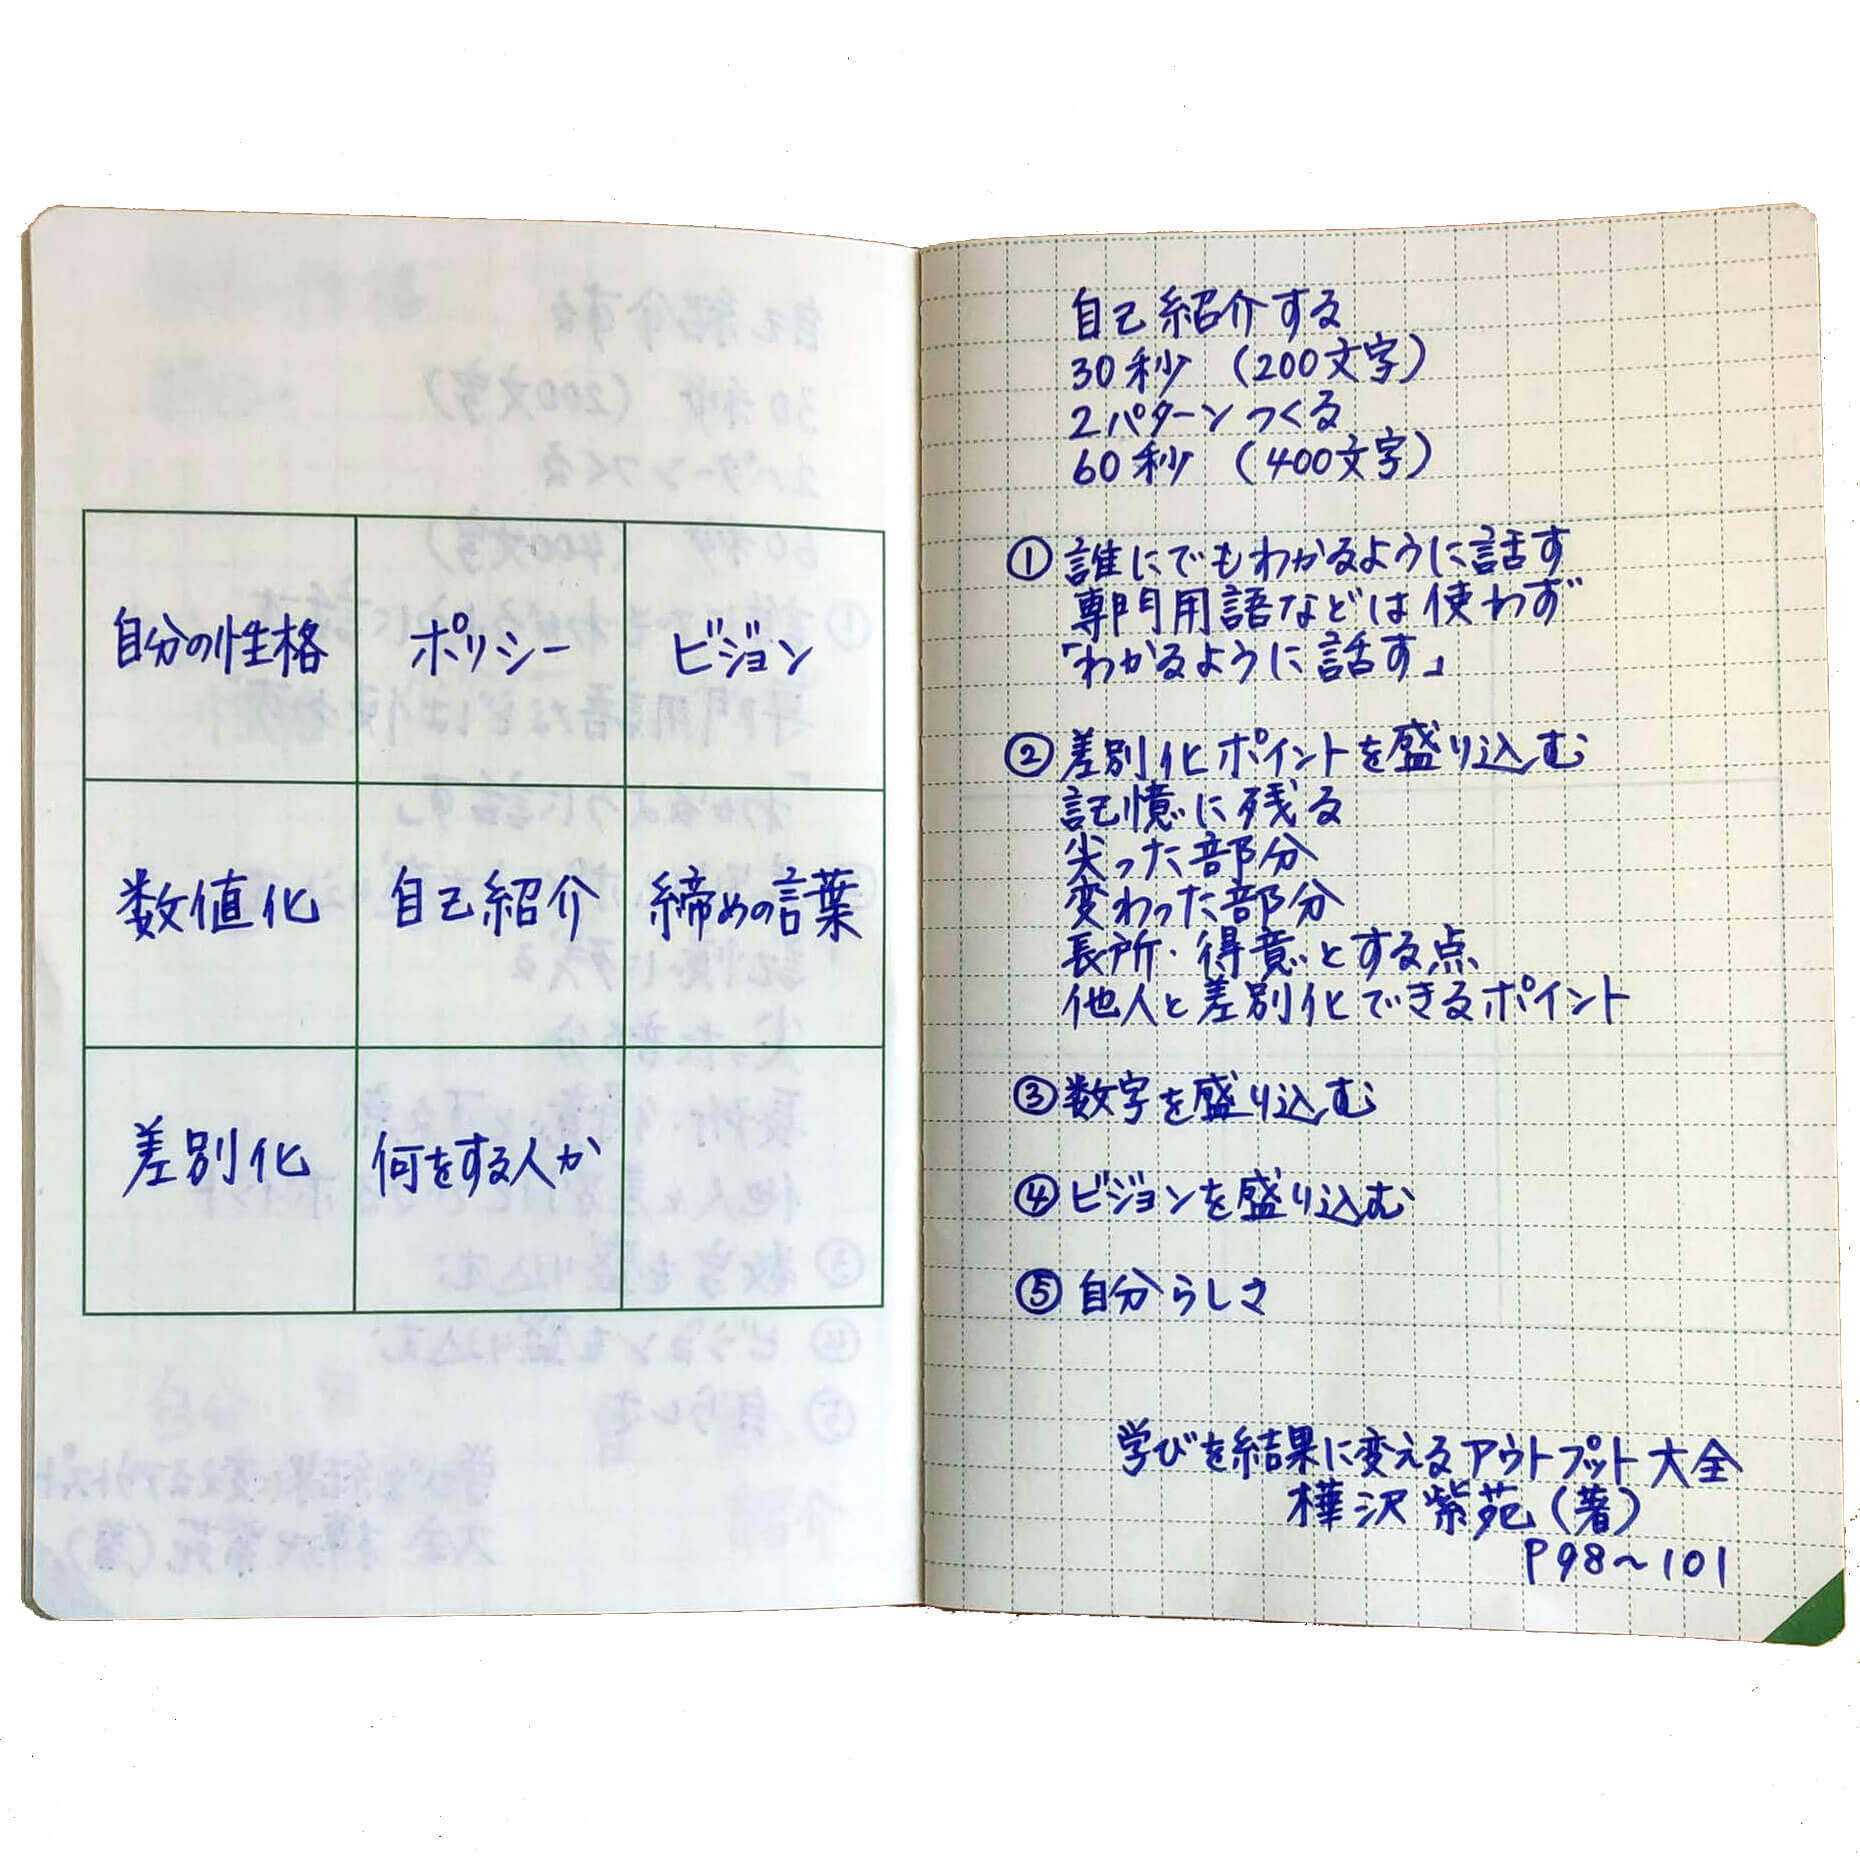 自分の性格 ポリシー ビジョン
数値化 自己紹介 締めの言葉
差別化 何をする人か
自己紹介する
30秒 (200文字)
2パターンつくる
60秒 (400文字)
① 誰にでもわかるように話す
専門用語などは使わず
「わかるように話す」
② 差別化ポイントを盛り込む
記憶に残る
尖った部分
変わった部分
長所・得意とする点
他人と差別化できるポイント
③ 数字を盛り込む
④ ビジョンを盛り込む
⑤ 自分らしさ
学びを結果に変えるアウトプット大全
樺沢紫苑(著)
P98〜101